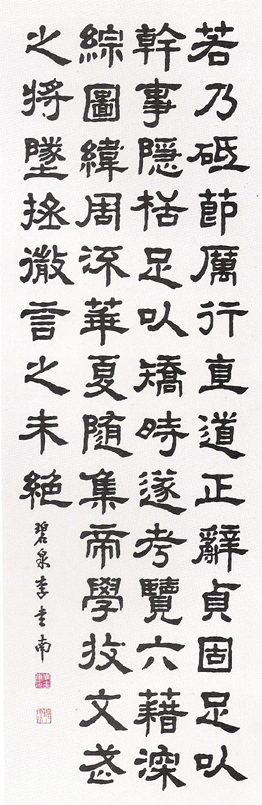 若乃砥節厲行直道正辭貞固足以
幹事隱栝足以矯時遂考覽六藉深
綜圖緯周流華夏随集帝學收文武
之將墜拯微言之未絕
碧泉李南